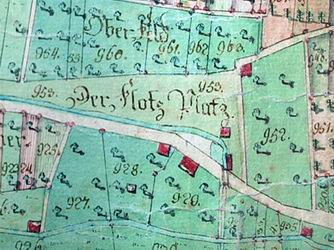 Ober Feld
964. 960. 961. 962 963.
953. 953.
Der Klotz Platz
952.
951
923 924
928
927. 929.
926